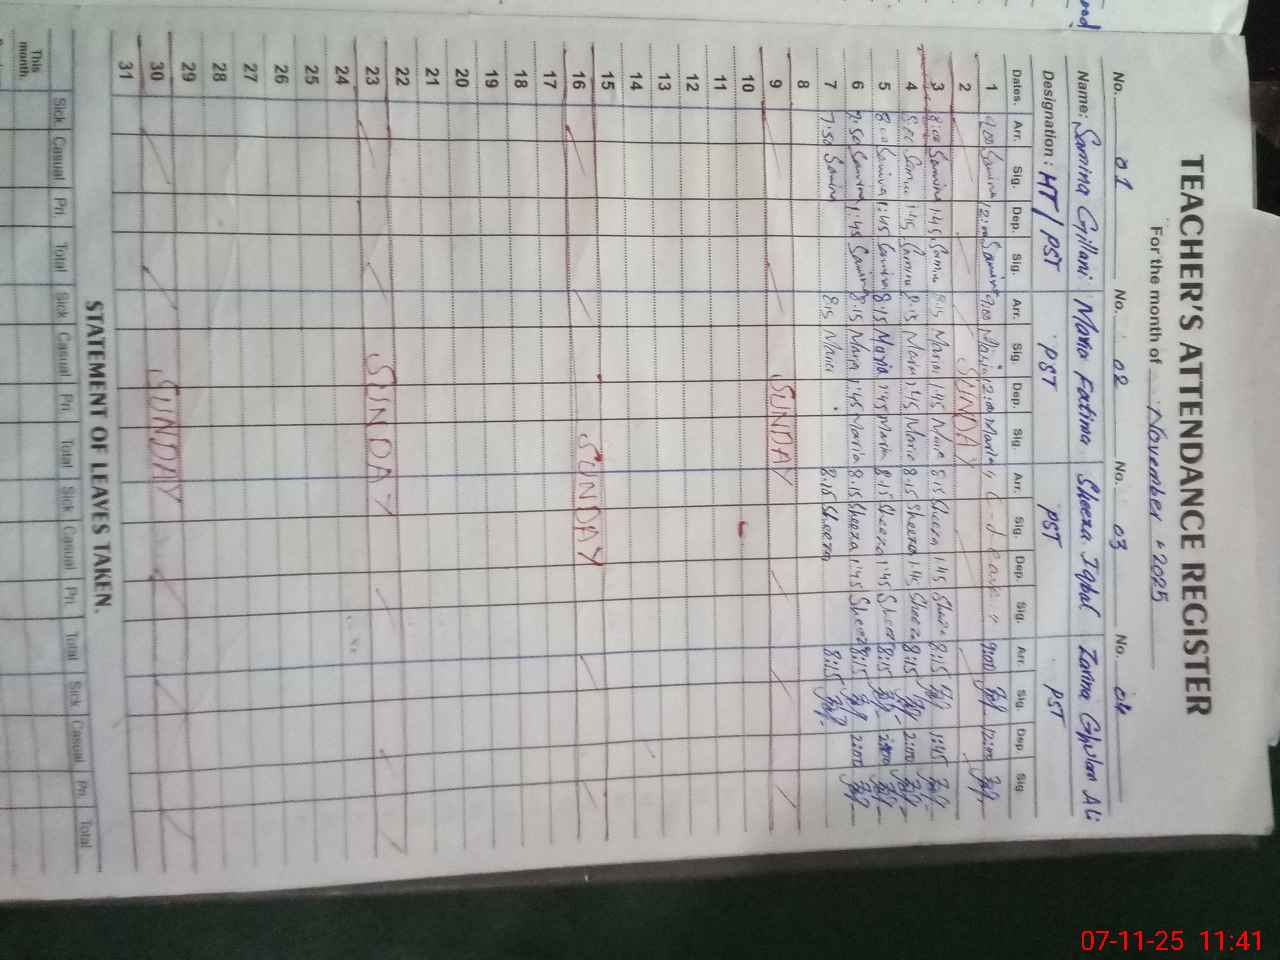 TEACHER'S ATTENDANCE REGISTER
For the month of November 2025
No. 01 No. 02 No. 03 No. 04
Name: Samina Gillani Maria Fatima Sheeza Iqbal Zarina Ghulam Ali
Designation: HT/PST PST PST PST
Dates. Arr. Sig. Dep. Sig. Arr. Sig. Dep. Sig. Arr. Sig. Dep. Sig. Arr. Sig. Dep. Sig.
1 9:00 Samina 12:00 Samina 9:00 Maria 12:00 Maria 9:00 12:00
2 SUNDAY
3 8:00 Samina 1:45 Samina 8:15 Maria 1:45 Maria 8:15 Sheeza 1:45 Sheeza 8:15 1:45
4 8:00 Samina 1:45 Samina 8:15 Maria 1:45 Maria 8:15 Sheeza 1:45 Sheeza 8:15 2:00
5 8:00 Samina 1:45 Samina 8:15 Maria 1:45 Maria 8:15 Sheeza 1:45 Sheeza 8:15 2:00
6 7:50 Samina 1:45 Samina 8:15 Maria 1:45 Maria 8:15 Sheeza 1:45 Sheeza 8:15 2:00
7 7:50 Samina 8:15 Maria 8:15 Sheeza 8:15
8
9 SUNDAY
10
11
12
13
14
15
16 SUNDAY
17
18
19
20
21
22
23 SUNDAY
24
25
26
27
28
29
30 SUNDAY
31
STATEMENT OF LEAVES TAKEN.
Sick Casual Pri. Total Sick Casual Pri. Total Sick Casual Pri. Total Sick Casual Pri. Total
This month
07-11-25 11:41